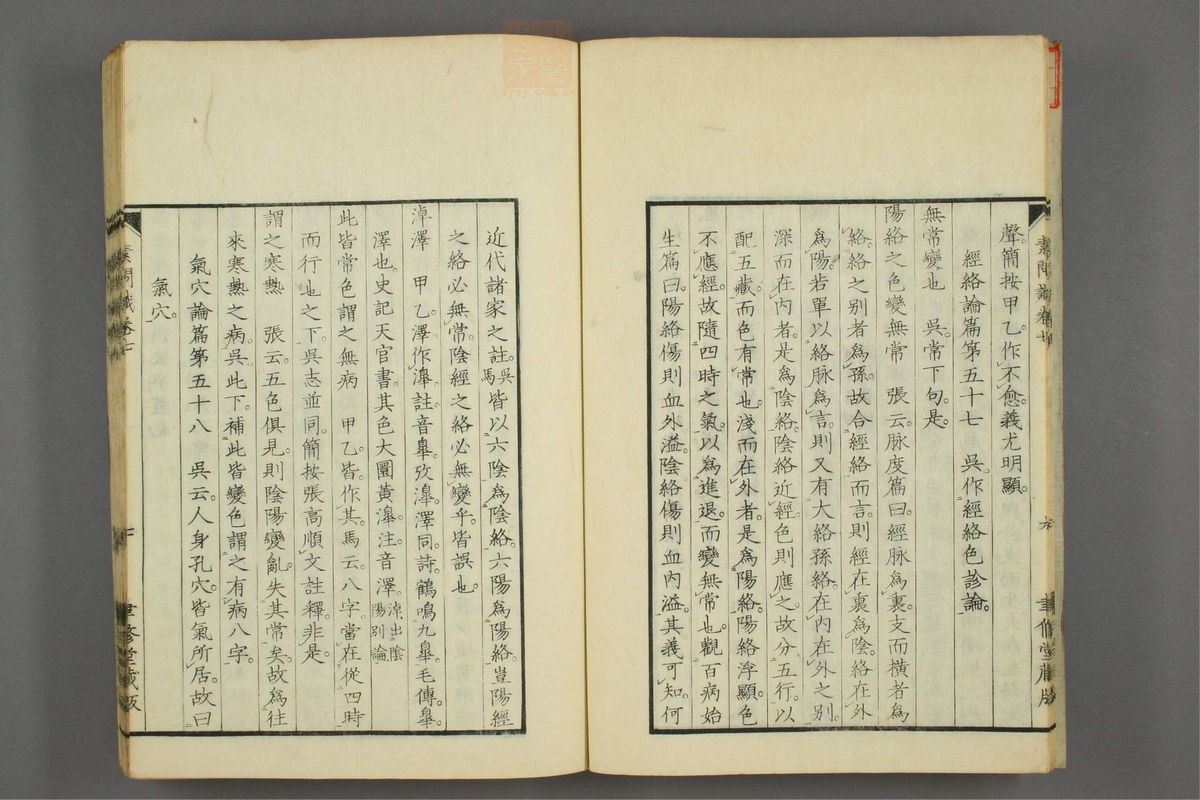 素問識卷七
聿修堂藏版
聲。簡按甲乙。作不愈。義尤明顯。
經絡論篇第五十七　吳。作經絡色診論。
無常變也　吳。常下句。是。
陽絡之色變無常　張云。脉度篇曰。經脉爲裏。支而橫者爲
絡。絡之別者爲孫。故合經絡而言。則經在裏爲陰。絡在外
爲陽。若單以絡脉爲言。則又有大絡孫絡。在內在外之別。
深而在內者。是爲陰絡。陰絡近經。色則應之。故分五行。以
配五藏。而色有常也。淺而在外者。是爲陽絡。陽絡浮顯。色
不應經。故隨四時之氣。以爲進退。而變無常也。觀百病始
生篇曰。陽絡傷則血外溢。陰絡傷則血內溢。其義可知。何
近代諸家之註。吳馬皆以六陰爲陰絡。六陽爲陽絡。豈陽經
之絡必無常。陰經之絡必無變乎。皆誤也。
淖澤　甲乙。澤作滜。註音皋。攷滜。澤同。詩。鶴鳴九皋。毛傳。皋。
澤也。史記天官書。其色大圜黃滜。注音澤。淖出陰陽別論
此皆常色謂之無病　甲乙。皆。作其。馬云。八字。當在從四時
而行也之下。吳志並同。簡按張高順文註釋。非是。
謂之寒熱　張云。五色俱見。則陰陽變亂。失其常矣。故爲往
來寒熱之病。吳此下。補此皆變色謂之有病八字。
氣穴論篇第五十八　吳云。人身孔穴。皆氣所居。故曰
氣穴。
素問識卷七
聿修堂藏版